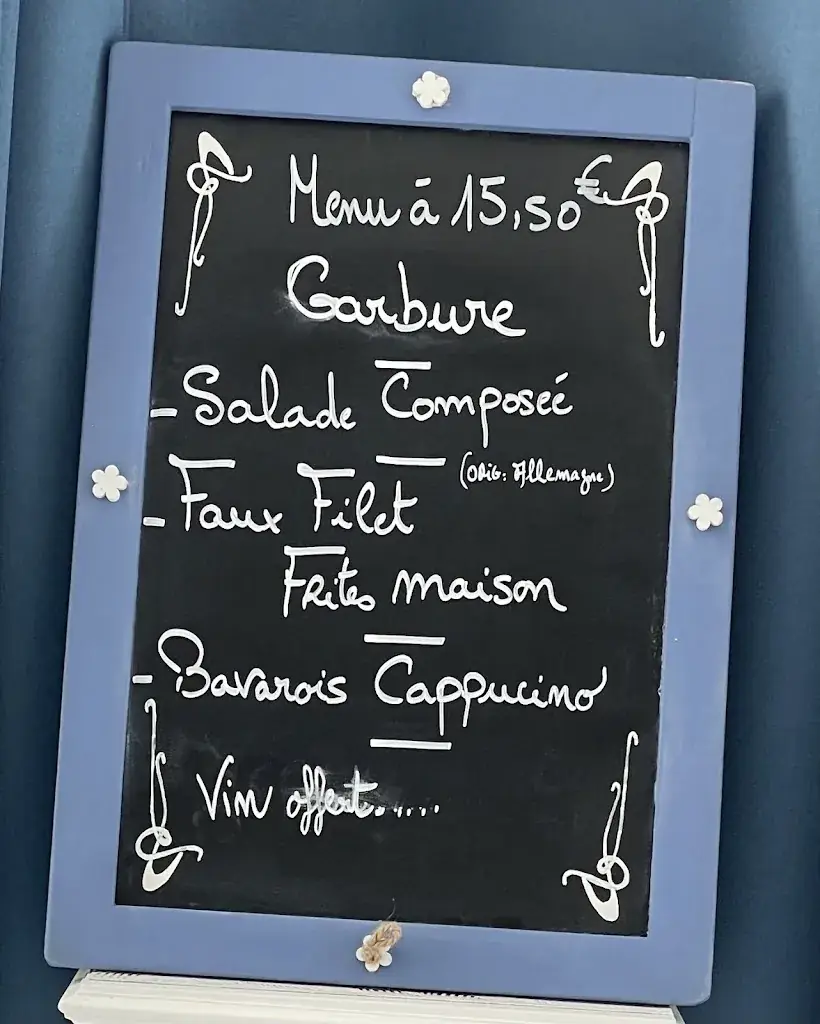 Menu à 15,50€
Garbure
- Salade Composée
(ORIG: Allemagne)
- Faux Filet
Frites maison
- Bavarois Cappucino
Vin offert.....